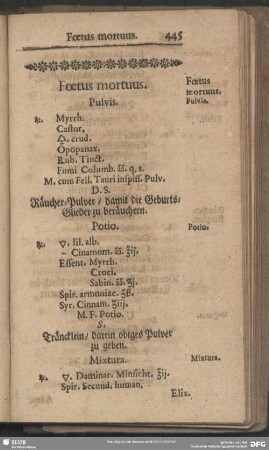 Fœtus mortuus. 445
Fœtus mortuus.
Fœtus mortuus.
Pulvis.
Pulvis.
℞. Myrrh.
Castor,
🜍. crud.
Opopanax.
Rub. Tinct.
Fumi Columb. āā. q. s.
M. cum Fell. Tauri inspiss. Pulv.
D. S.
Räucher-Pulver / damit die Geburts-
Glieder zu beräuchern.
Potio.
Potio.
℞. ▽. lil. alb.
- Cinamom. āā. ℥ij.
Essent. Myrrh.
Croci,
Sabin. āā. ʒj.
Spir. armoniac. ʒß.
Syr. Cinnam. ʒiij.
M. F. Potio.
S.
Träncklein / darein obiges Pulver
zu geben.
Mixtura.
Mixtura.
℞. ▽. Daminar. Minsicht. ℥ij.
Spir. Secund. human,
Elix.
SLUB
DFG